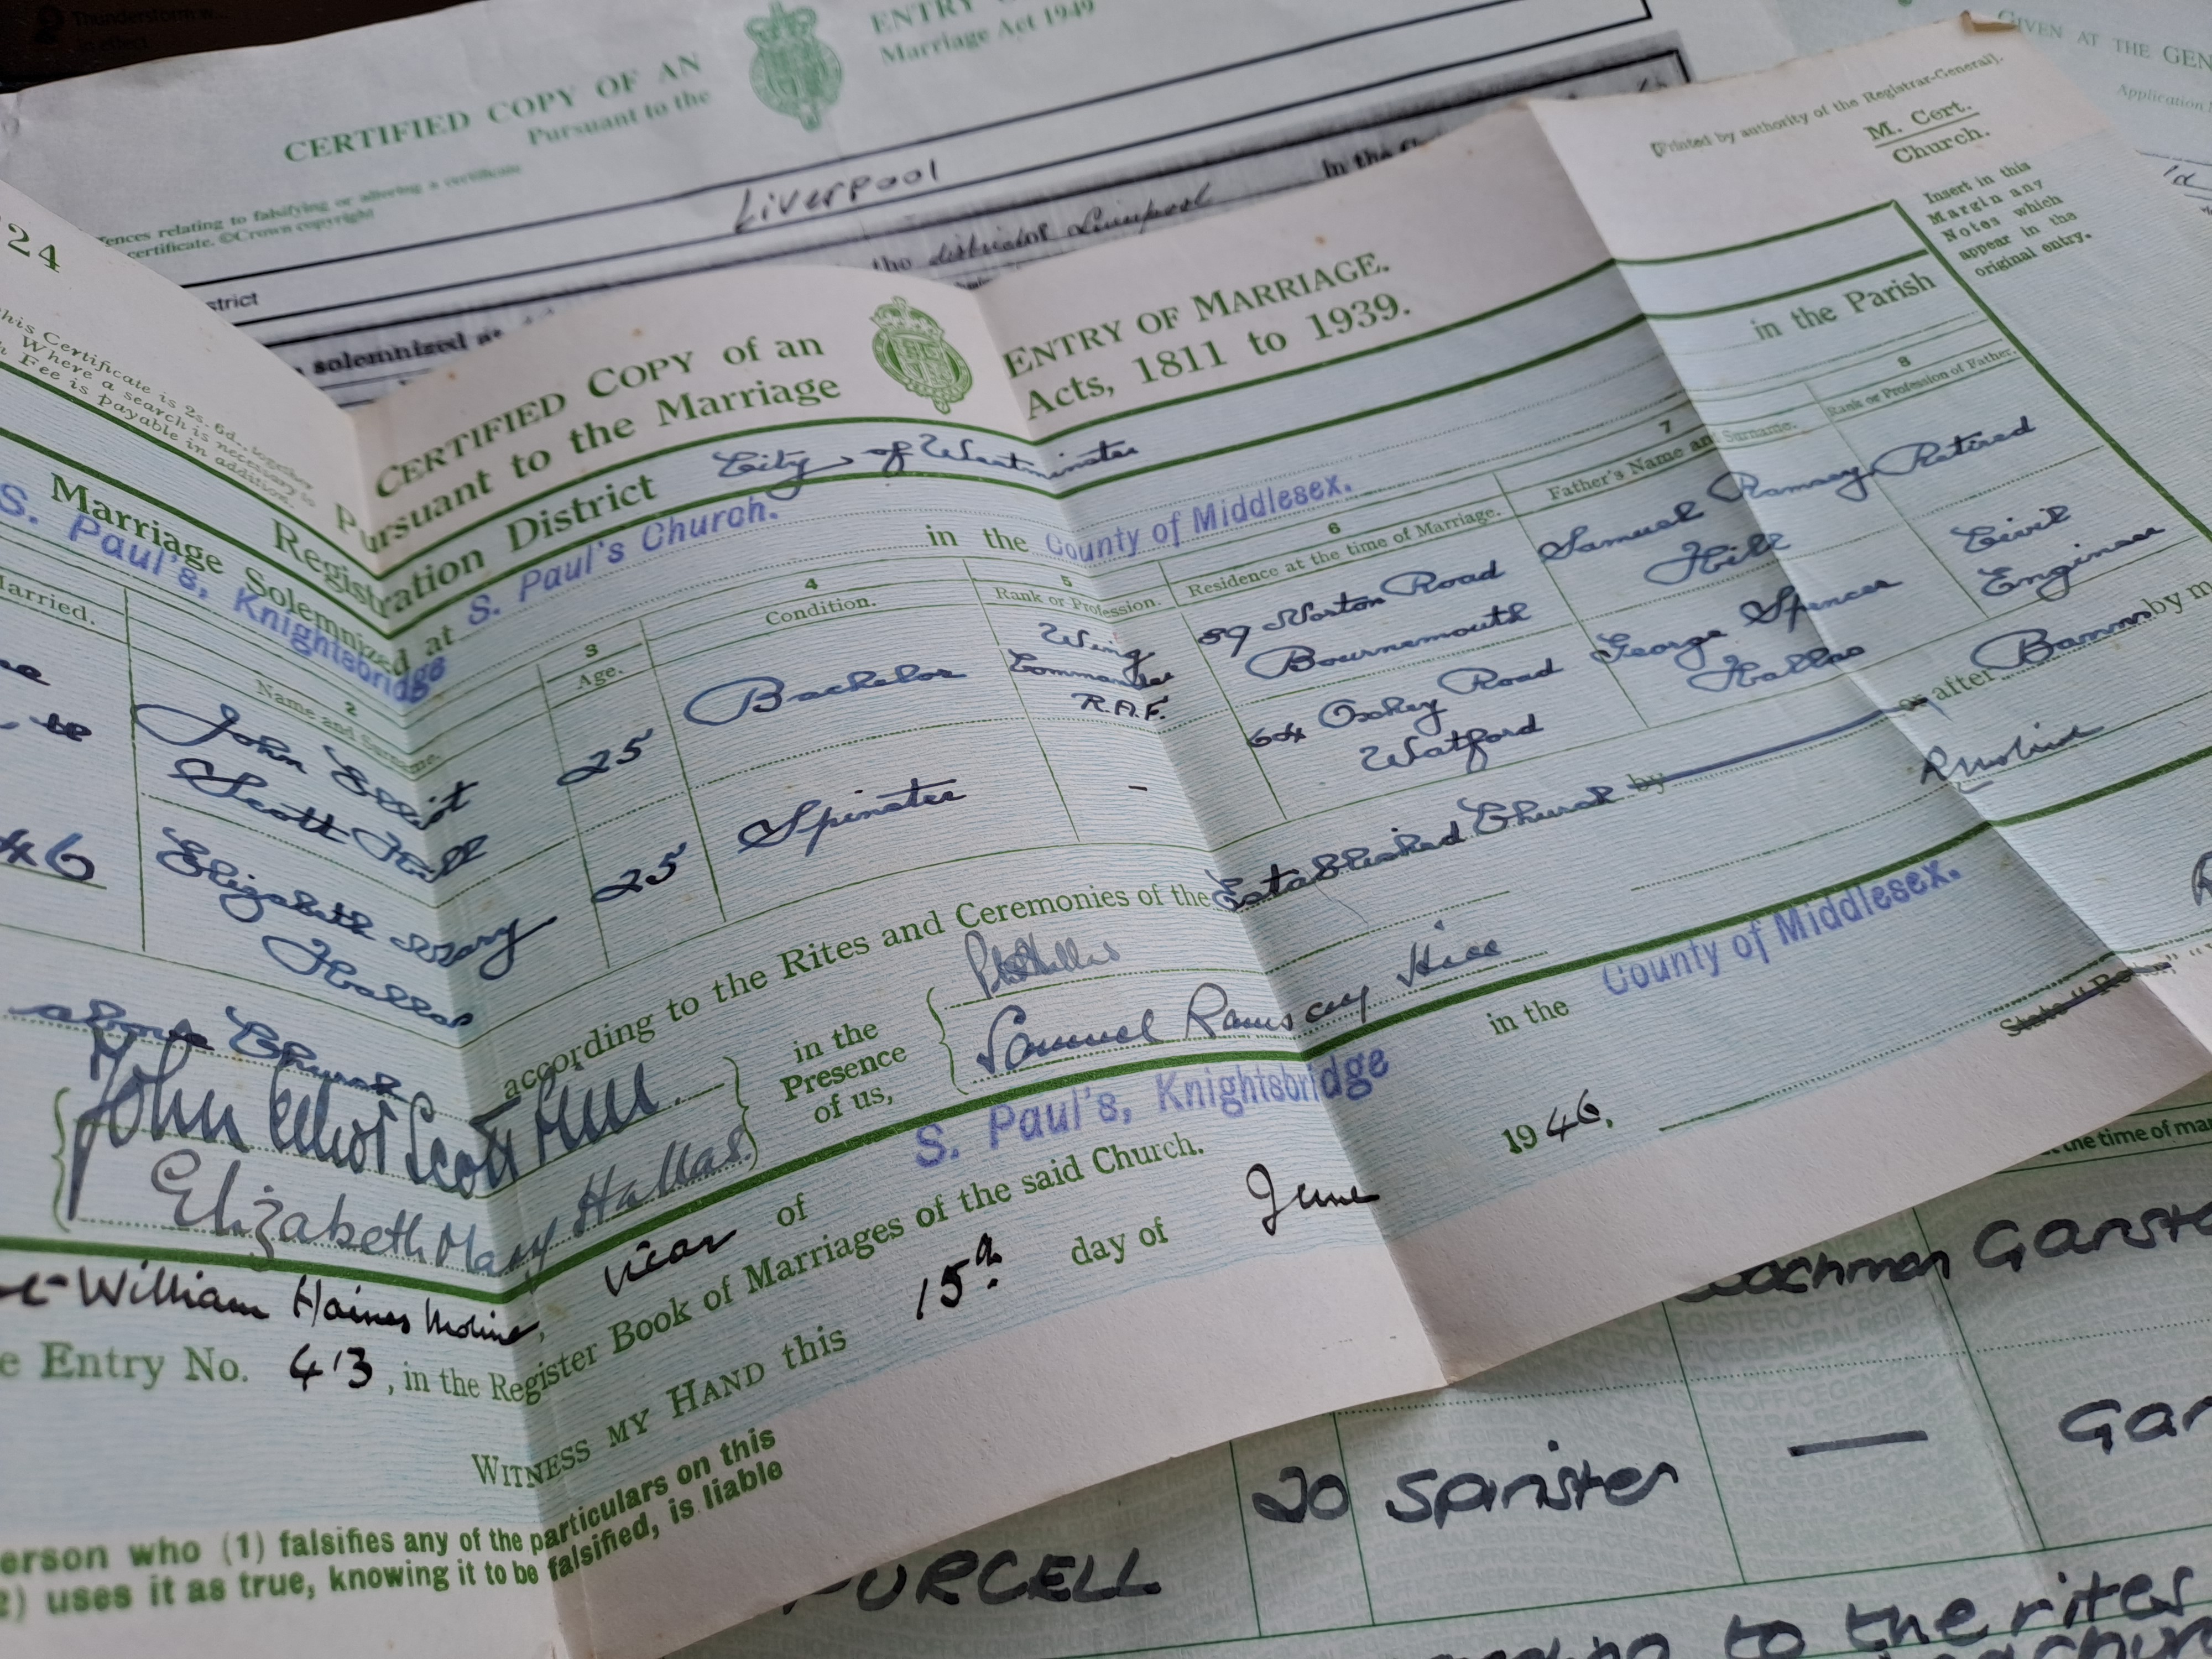 Thunderstorm w...
in effect
CERTIFIED COPY OF AN
ENTRY
Pursuant to the
Marriage Act 1949
GIVEN AT THE GEN
Application
ences relating to falsifying or altering a certificate
certificate. ©Crown copyright
Liverpool
In the
the district of Liverpool
strict
solemnized at
24
his Certificate is 2s. 6d., together
Where a search is necessary to
Fee is payable in addition.
[Printed by authority of the Registrar-General].
M. Cert.
Church.
Insert in this
Margin any
Notes which
appear in the
original entry.
CERTIFIED COPY of an ENTRY OF MARRIAGE.
Pursuant to the Marriage Acts, 1811 to 1939.
Registration District City of Westminster
Marriage Solemnized at S. Paul's Church. in the County of Middlesex. in the Parish
S. Paul's, Knightsbridge
Married.
2
Name and Surname.
3
Age.
4
Condition.
5
Rank or Profession.
6
Residence at the time of Marriage.
7
Father's Name and Surname.
8
Rank or Profession of Father.
John Elliot
Scott Hill
25
Bachelor
Wing
Commander
R.A.F.
89 Norton Road
Bournemouth
Samuel Ramsey
Hill
Retired
Civil
Engineer
46
Elizabeth Mary
Hallas
25
Spinster
-
64 Oxhey Road
Watford
George Spencer
Hallas
above Church according to the Rites and Ceremonies of the Established Church by or after Banns by m
John Elliot Scott Hill.
Elizabeth Mary Hallas.
in the
Presence
of us,
Samuel Ramsey Hill
William Haines Moline, Vicar of S. Paul's, Knightsbridge in the County of Middlesex.
e Entry No. 413, in the Register Book of Marriages of the said Church.
WITNESS MY HAND this 15th day of June 1946.
erson who (1) falsifies any of the particulars on this
2) uses it as true, knowing it to be falsified, is liable
the time of mar
achman
Garst
20
Spinster
—
Gar
PURCELL
to the rites